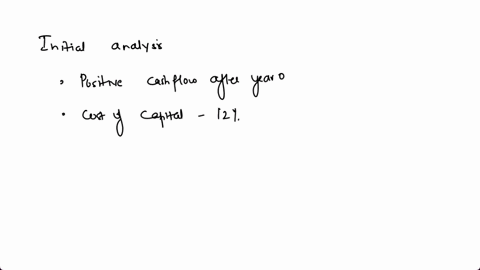 Initial analysis
• Positive cashflow after year 0
• Cost of Capital - 12%